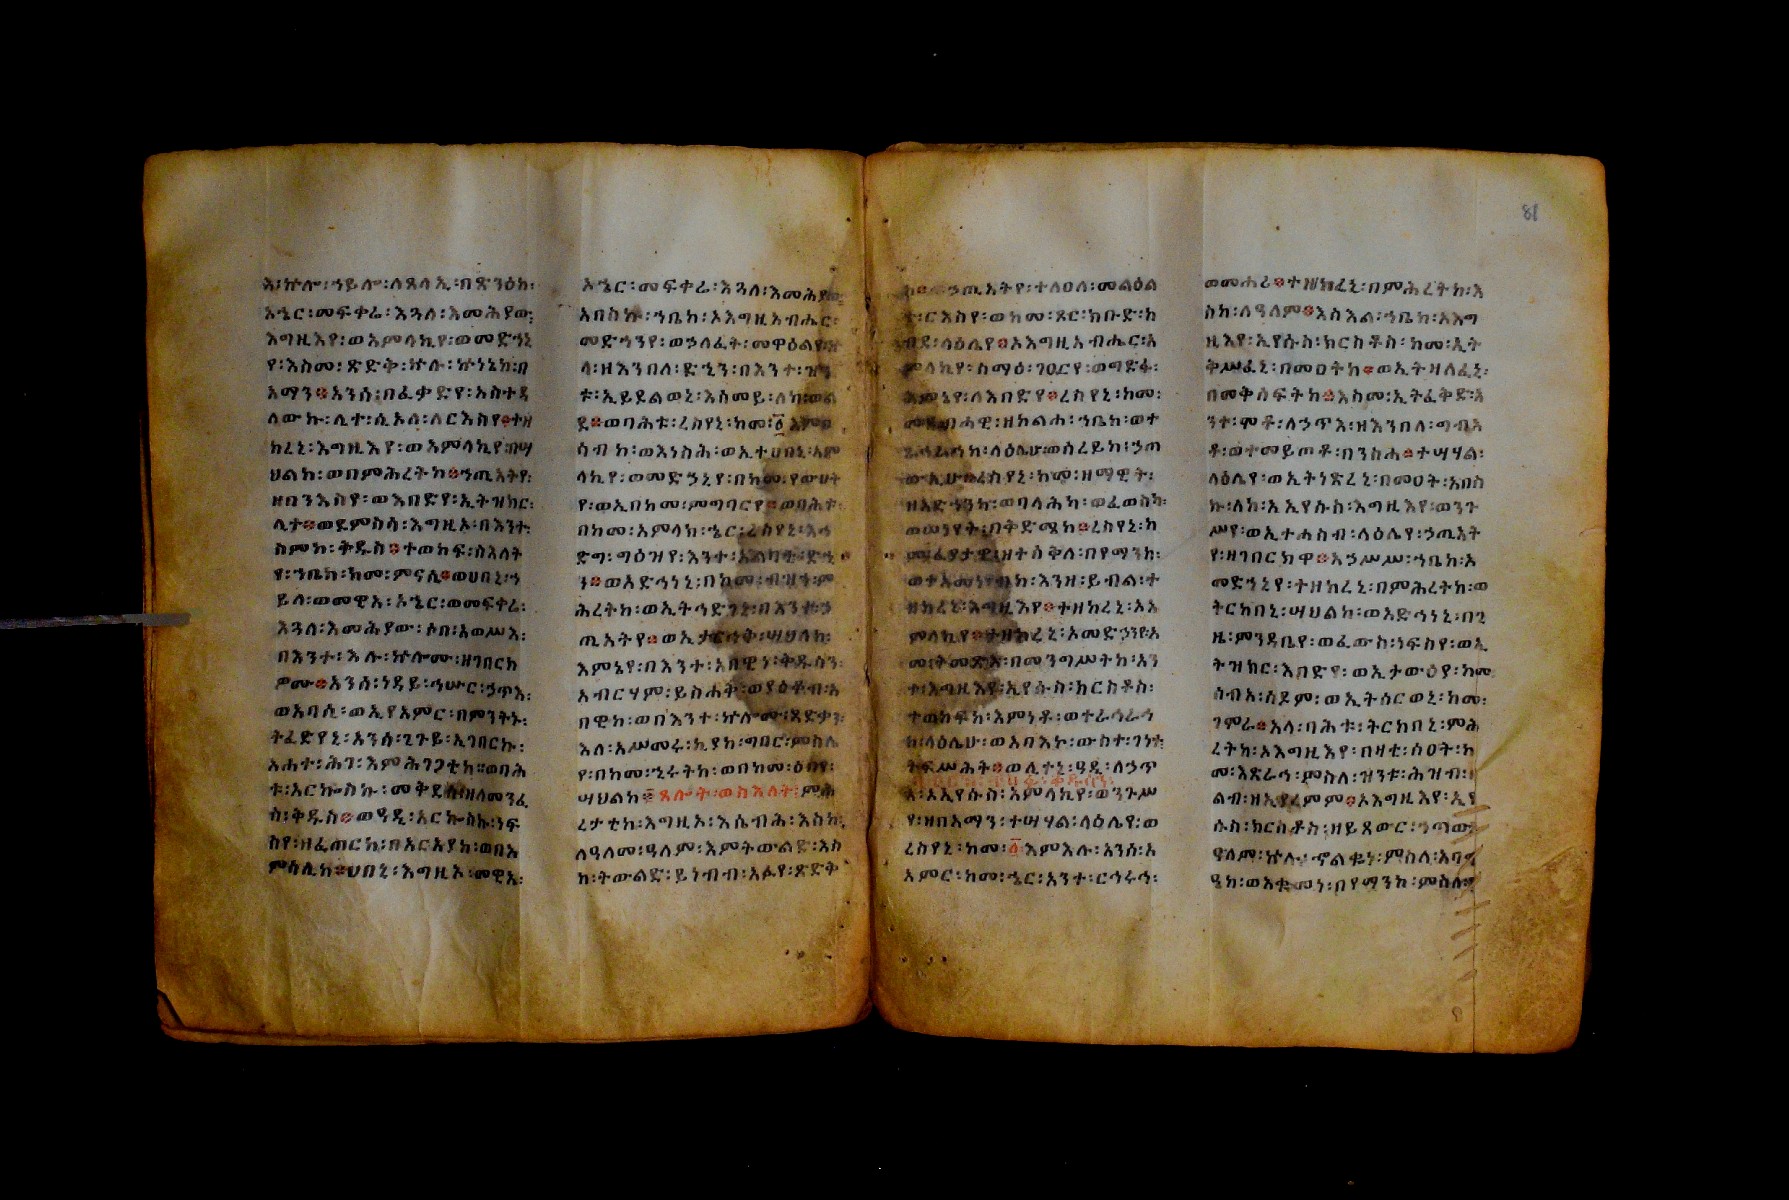 እ፡ኵሎ፡ኀይሎ፡ለጸላኢ፡በጽንዕከ፡
ኦኄር፡መፍቀሬ፡እጓለ፡እመሕያው፡
እግዚእየ፡ወአምላኪየ፡ወመድኀኒ
የ፡እስመ፡ጽድቅ፡ኵሉ፡ኵነኔከ፡በ
አማን፨አንሰ፡በፈቃድየ፡አስተዳ
ለውኩ፡ሊተ፡ሲኦለ፡ለርእስየ፨ተዘ
ከረኒ፡እግዚእየ፡ወአምላኪየ፡ብሣ
ህልከ፡ወበምሕረትከ፨ኀጢአትየ፡
ዘበንእስየ፡ወእበድየ፡ኢትዝክር፡
ሊተ፨ወደምስስ፡እግዚኦ፡በእንተ፡
ስምከ፡ቅዱስ፨ተወከፍ፡ስእለት
የ፡ኀቤከ፡ከመ፡ምናሴ፨ወሀበኒ፡ኀ
ይለ፡ወመዊአ፡ኦኄር፡ወመፍቀሬ፡
እጓለ፡እመሕያው፡ሶበ፡አወሥእ፡
በእንተ፡እሉ፡ኵሎሙ፡ዘገበርክ
ዎሙ፨አንሰ፡ነዳይ፡ኅሡር፡ኃጥእ፡
ወአባሲ፡ወኢየአምር፡በምንትኑ፡
ትፈድየኒ፡አንሰ፡ጊጉይ፡ኢገበርኩ፡
አሐተ፡ሕገ፡እምሕገጋቲከ።ወባሕ
ቱ፡አርኰስኩ፡መቅደሰ፡ዘለመንፈ
ስ፡ቅዱስ፨ወዓዲ፡አርኰስኩ፡ነፍ
ስየ፡ዘፈጠርከ፡በአርአያከ፡ወበአ
ምሳሊከ፨ሀበኒ፡እግዚኦ፡መዊአ፡
ኦኄር፡መፍቀሬ፡እጓለ፡እመሕያው
አበስኩ፡ኀቤከ፡ኦእግዚአብሔር፡
መድኀንየ፡ወኃለፈት፡መዋዕልየ፡
ላ፡ዘእንበለ፡ድኂን፡በእንተ፡ዝን
ቱ፡ኢይደልወኒ፡እስመይ፡ለከ፡ወል
ደ፨ወባሕቱ፡ረስየኒ፡ከመ፡፩እምፀ
ሰብከ፡ወእነስሕ፡ወኢተሀበኒ፡አም
ላኪየ፡ወመድኃኒየ፡በከመ፡የውሀት
የ፡ወኢበከመ፡ምግባርየ፨ወባሕቱ፡
በከመ፡አምላክ፡ኄር፡ረስየኒ፡እኅ
ድግ፡ግዕዝየ፡እንተ፡አልባቲ፡ድኂ
ን፨ወአድኅነኒ፡በከመ፡ብዝኀ፡ም
ሕረትከ፡ወኢትኅድገኒ፡በእንተ፡ኃ
ጢአትየ፨ወኢታርኅቅ፡ሣህለከ፡
እምኔየ፡በእንተ፡አበዊነ፡ቅዱሳን፡
አብርሃም፡ይስሐቅ፡ወያዕቆብ፡አ
በዊከ፡ወበእንተ፡ኵሎሙ፡ጻድቃን፡
እለ፡አሥመሩ፡ኪያከ፡ግበር፡ምስሌ
የ፡በከመ፡ኂሩትከ፡ወበከመ፡ዕበየ፡
ሣህልከ፨ጸሎት፡ወስእለት፡ምሕ
ረታቲከ፡እግዚኦ፡እሴብሕ፡እስከ፡
ለዓለመ፡ዓለም፡እምትውልድ፡እስ
ከ፡ትውልድ፡ይነብብ፡አፉየ፡ጽድቅ
ከ፨ኃጢአትየ፡ተለዐለ፡መልዕል
ተ፡ርእስየ፡ወከመ፡ጾር፡ክቡድ፡ከ
ብደ፡ላዕሌየ፨ኦእግዚአብሔር፡አ
ምላኪየ፡ስማዕ፡ገዐርየ፡ወግድፋ፡
እምኔየ፡ለእበድየ፨ረስየኒ፡ከመ፡
ወተአመነ፡ብከ፡እንዘ፡ይብል፡ተ
ዘከረኒ፡እግዚእየ፨ተዘከረኒ፡ኦአ
ምላኪየ፨ተዘከረኒ፡አመድኃንየ፡አ
መ፡ትመጽእ፡በመንግሥትከ፡አን
ተ፡እግዚእየ፡ኢየሱስ፡ክርስቶስ፡
ተወከፍከ፡እምነቶ፡ወተራኅራኅ
ከ፡ላዕሌሁ፡ወአባእኮ፡ውስተ፡ገነተ፡
ትፍሥሕት፨ወሊተኒ፡ዓዲ፡ለኃጥ
እ፡ኦኢየሱስ፡አምላኪየ፡ወንጉሥ
የ፡ዘበአማን፡ተሣሃል፡ላዕሌየ፡ወ
ረስየኒ፡ከመ፡፩እምእሉ፡አንሰ፡አ
አምር፡ከመ፡ኄር፡አንተ፡ርኅሩኅ፡
ወመሐሪ፨ተዘከረኒ፡በምሕረትከ፡እ
ስከ፡ለዓለም፨እስእል፡ኀቤከ፡ኦእግ
ዚእየ፡ኢየሱስ፡ክርስቶስ፡ከመ፡ኢት
ቅሥፈኒ፡በመዐትከ፨ወኢትዛለፈኒ፡
በመቅሰፍትከ፨እስመ፡ኢትፈቅድ፡እ
ንተ፡ሞቶ፡ለኃጥእ፡ዘእንበለ፡ግብአ
ቶ፡ወተመይጦቶ፡በንስሐ፨ተሣሃል፡
ላዕሌየ፡ወኢትነጽረኒ፡በመዐት፡አበስ
ኩ፡ለከ፡ኦኢየሱስ፡እግዚእየ፡ወንጉ
ሥየ፡ወኢተሐስብ፡ላዕሌየ፡ኃጢአት
የ፡ዘገበርክዋ፨አኃሥሥ፡ኀቤከ፡አ
መድኀኒየ፡ተዘከረኒ፡በምሕረትከ፡ወ
ትርከበኒ፡ሣህልከ፡ወአድኅነኒ፡በጊ
ዜ፡ምንዳቤየ፡ወፈውስ፡ነፍስየ፡ወኢ
ትዝክር፡እበድየ፡ወኢታውዕየ፡ከመ፡
ሰብአ፡ሰዶም፡ወኢትሰርወኒ፡ከመ፡
ገሞራ፨አላ፡ባሕቱ፡ትርከበኒ፡ምሕ
ረትከ፡ኦእግዚእየ፡በዛቲ፡ሰዐት፡ከ
መ፡እጽራኅ፡ምስለ፡ዝንቱ፡ሕዝብ፡
ልብ፡ዘኢያረምም፨ኦእግዚእየ፡ኢየ
ሱስ፡ክርስቶስ፡ዘይጸውር፡ኀጣውአ
ዓለም፡ኵሉ፡ኆልቈነ፡ምስለ፡አባግ
ዒከ፡ወአቁመነ፡በየማንከ፡ምስለ፡
81